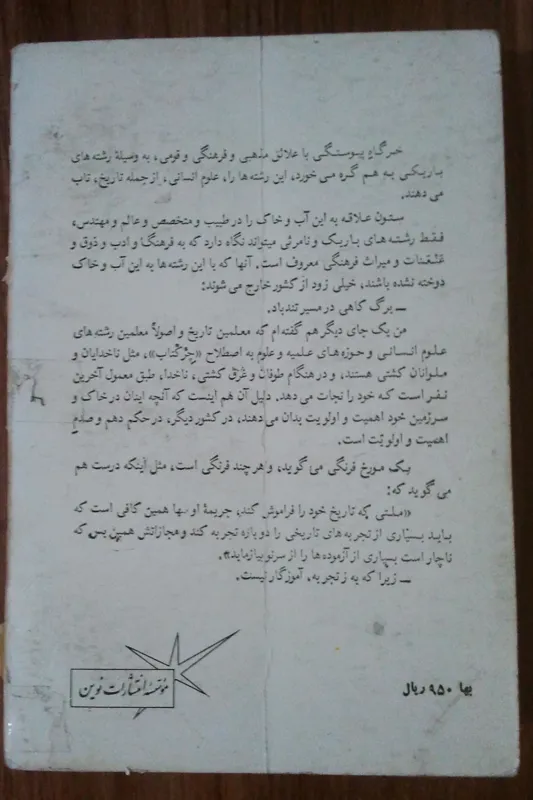 خرگاه پیوستگی با علائق مذهبی و فرهنگی و قومی، به وسیلهٔ رشته‌های
باریکی به هم گره می خورد، این رشته‌ها را، علوم انسانی، از جمله تاریخ، تاب
می دهند.
ستون علاقه به این آب و خاک را در طبیب و متخصص و عالم و مهندس،
فقط رشته‌های باریک و نامرئی میتواند نگاه دارد که به فرهنگ و ادب و ذوق و
عنعنات و میراث فرهنگی معروف است. آنها که با این رشته‌ها به این آب و خاک
دوخته نشده باشند، خیلی زود از کشور خارج می شوند:
ــ برگ کاهی در مسیر تندباد.
من یک جای دیگر هم گفته‌ام که معلمین تاریخ و اصولاً معلمین رشته‌های
علوم انسانی و حوزه‌های علمیه و علوم به اصطلاح «جزء کتاب»، مثل ناخدایان و
ملوانان کشتی هستند، و در هنگام طوفان و غرق کشتی، ناخدا، طبق معمول آخرین
نفر است که خود را نجات می دهد. دلیل آن هم اینست که آنچه اینان در خاک و
سرزمین خود اهمیت و اولویت بدان می دهند، در کشور دیگر، در حکم دهم و صدم
اهمیت و اولویت است.
یک مورخ فرنگی می گوید، و هر چند فرنگی است، مثل اینکه درست هم
می گوید که:
«ملتی که تاریخ خود را فراموش کند، جریمهٔ او تنها همین کافی است که
باید بسیاری از تجربه‌های تاریخی را دوباره تجربه کند و مجازاتش همین بس که
ناچار است بسیاری از آزموده‌ها را از سر نو بیازماید».
ــ زیرا که به ز تجربه، آموزگار نیست.
مؤسسهٔ انتشارات نوین
بها ۹۵۰ ریال